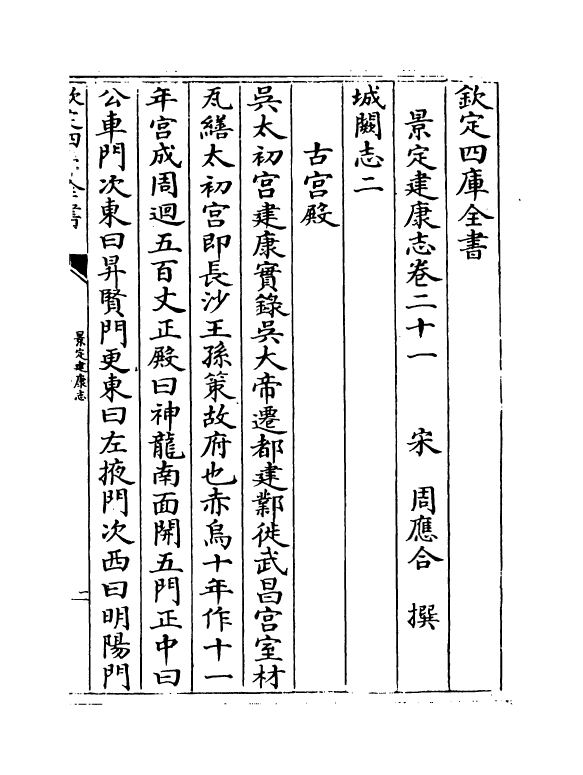 欽定四庫全書
景定建康志卷二十一　宋　周應合　撰
城闕志二
古宫殿
吳太初宫建康實錄吳大帝遷都建鄴徙武昌宫室材
瓦繕太初宫即長沙王孫策故府也赤烏十年作十一
年宫成周迴五百丈正殿曰神龍南面開五門正中曰
公車門次東曰昇賢門更東曰左掖門次西曰明陽門
欽定四庫全書
景定建康志
一